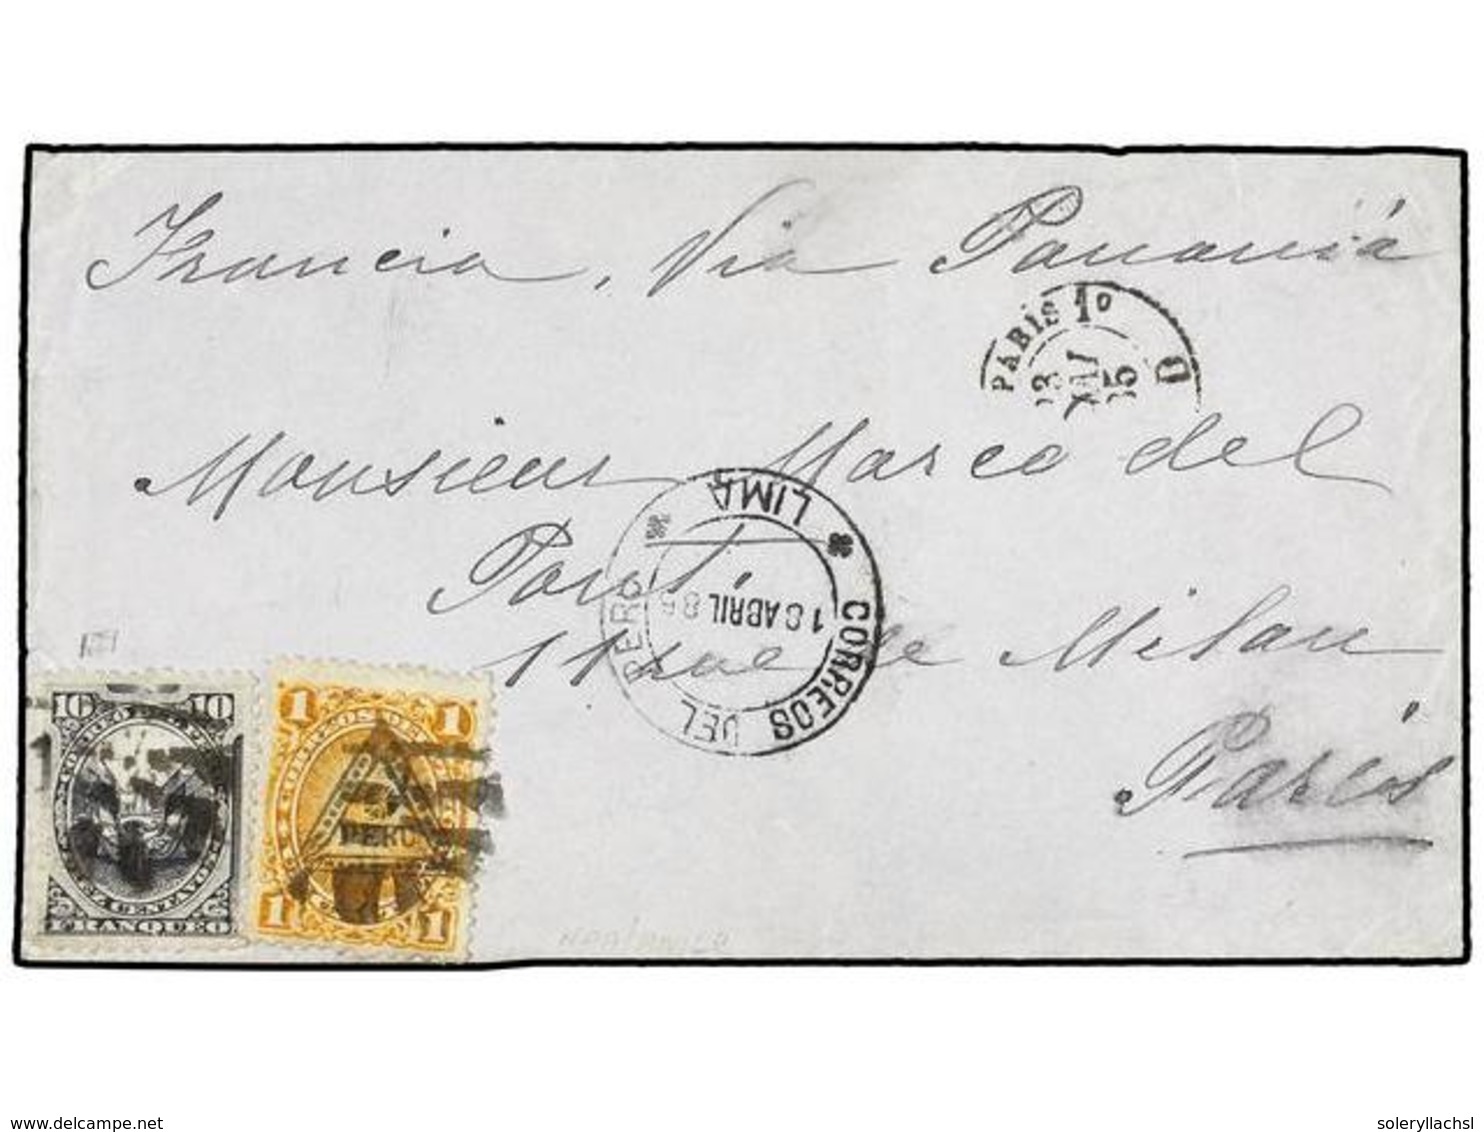 Francia, Via Panamá
PARIS 1º
23
MAI
85
Monsieur Marco del
Pont,
11 rue de Milan
Paris
LIMA
18 ABRIL 85
CORREOS DEL PERU
10 10
FRANQUEO
1 1
PERU
1 1
www.delcampe.net
soleryllachsl